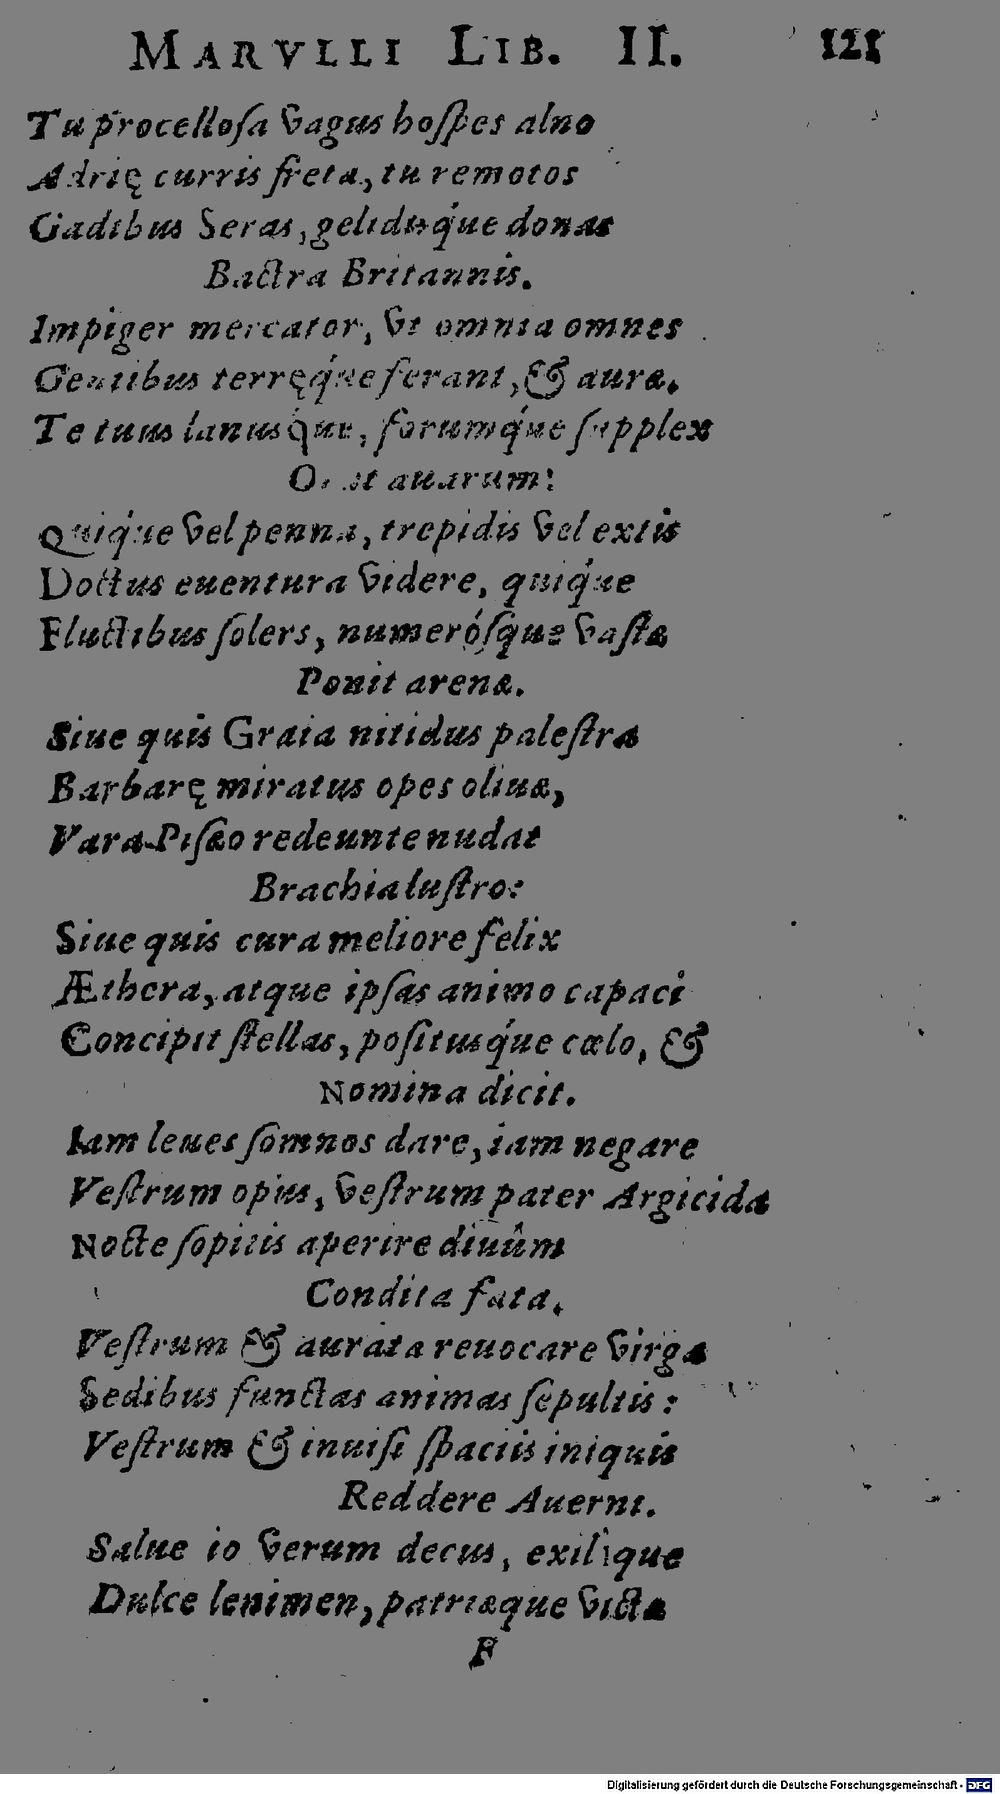 MARVLLI LIB. II. 121
Tu procellosa vagus hospes alno
Adrię curris freta, tu remotos
Gadibus Seras, gelidisq́ue donas
Bactra Britannis.
Impiger mercator, vt omnia omnes
Gentibus terręq́ue ferant, & auræ.
Te tuus lanusq́ue, forumq́ue supplex
auarum:
Quiq́ue vel penna, trepidis vel extis
Doctus euentura videre, quiq́ue
Fluctibus solers, numerósque vastæ
Ponit arenæ.
Siue quis Graia nitidus palestra
Barbarę miratus opes oliuæ,
Vara Pisæo redeunte nudat
Brachia lustro:
Siue quis cura meliore felix
Æthera, atque ipsas animo capaci
Concipit stellas, positusq́ue cœlo, &
Nomina dicit.
Iam leues somnos dare, iam negare
Vestrum opus, vestrum pater Argicida
Nocte sopitis aperire diuûm
Condita fata.
Vestrum & aurata reuocare virga
Sedibus functas animas sepultis:
Vestrum & inuisi spaciis iniquis
Reddere Auerni.
Salue io verum decus, exilìque
Dulce lenimen, patriæque victæ
F
Digitalisierung gefördert durch die Deutsche Forschungsgemeinschaft - DFG